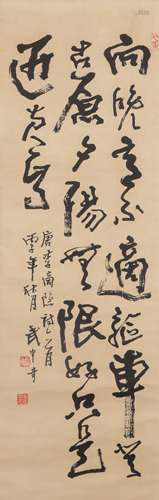 向晚意不適驅車登
古原夕陽無限好只是
近黃昏
唐李商隱詩一首
丙子年秋月 武中奇